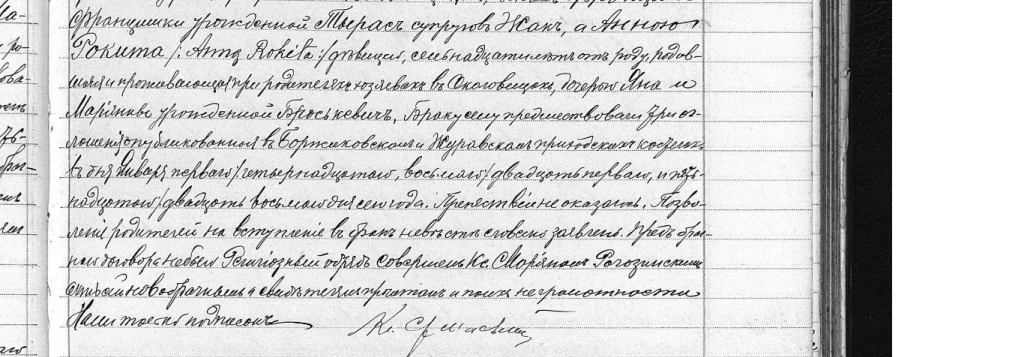 Францишки урожденной Тырасъ супруговъ Жакъ, а Анною
Рокита /: Anną Rokita :/ дѣвицею, семьнадцати лѣтъ отъ роду, родов-
шеюся и проживающею при родителяхъ хозяевахъ въ, дочерью Яна и
Маріанны урожденной Броськевичъ, Браку сему предшествовали три ог-
лошенія опубликованныя въ Боржиковскомъ и Журавскомъ приходскихъ костелахъ
въ дня Января перваго /четырнадцатаго, восьмаго/ двадцать перваго, и пят-
надцатаго /двадцать восьмаго дня сего года. Препятствіе не оказалось. Позво-
леніе родителей на вступленіе въ бракъ невѣсты словесно заявлено. Предъ брач-
наго договора небыло Религіозный обрядъ совершенъ Кс. Маріаномъ Рогозинскимъ
новобрачнымъ и свидѣтелямъ прочитанъ и по ихъ неграмотности
Нами только подписанъ
Кс.